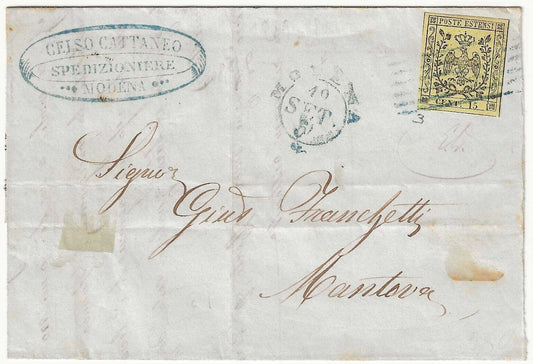 CELSO CATTANEO
SPEDIZIONIERE
MODENA
MODENA
10
SET.
POSTE ESTENSI
CENT. 15
3
Signor
Gius Franchetti
Mantova